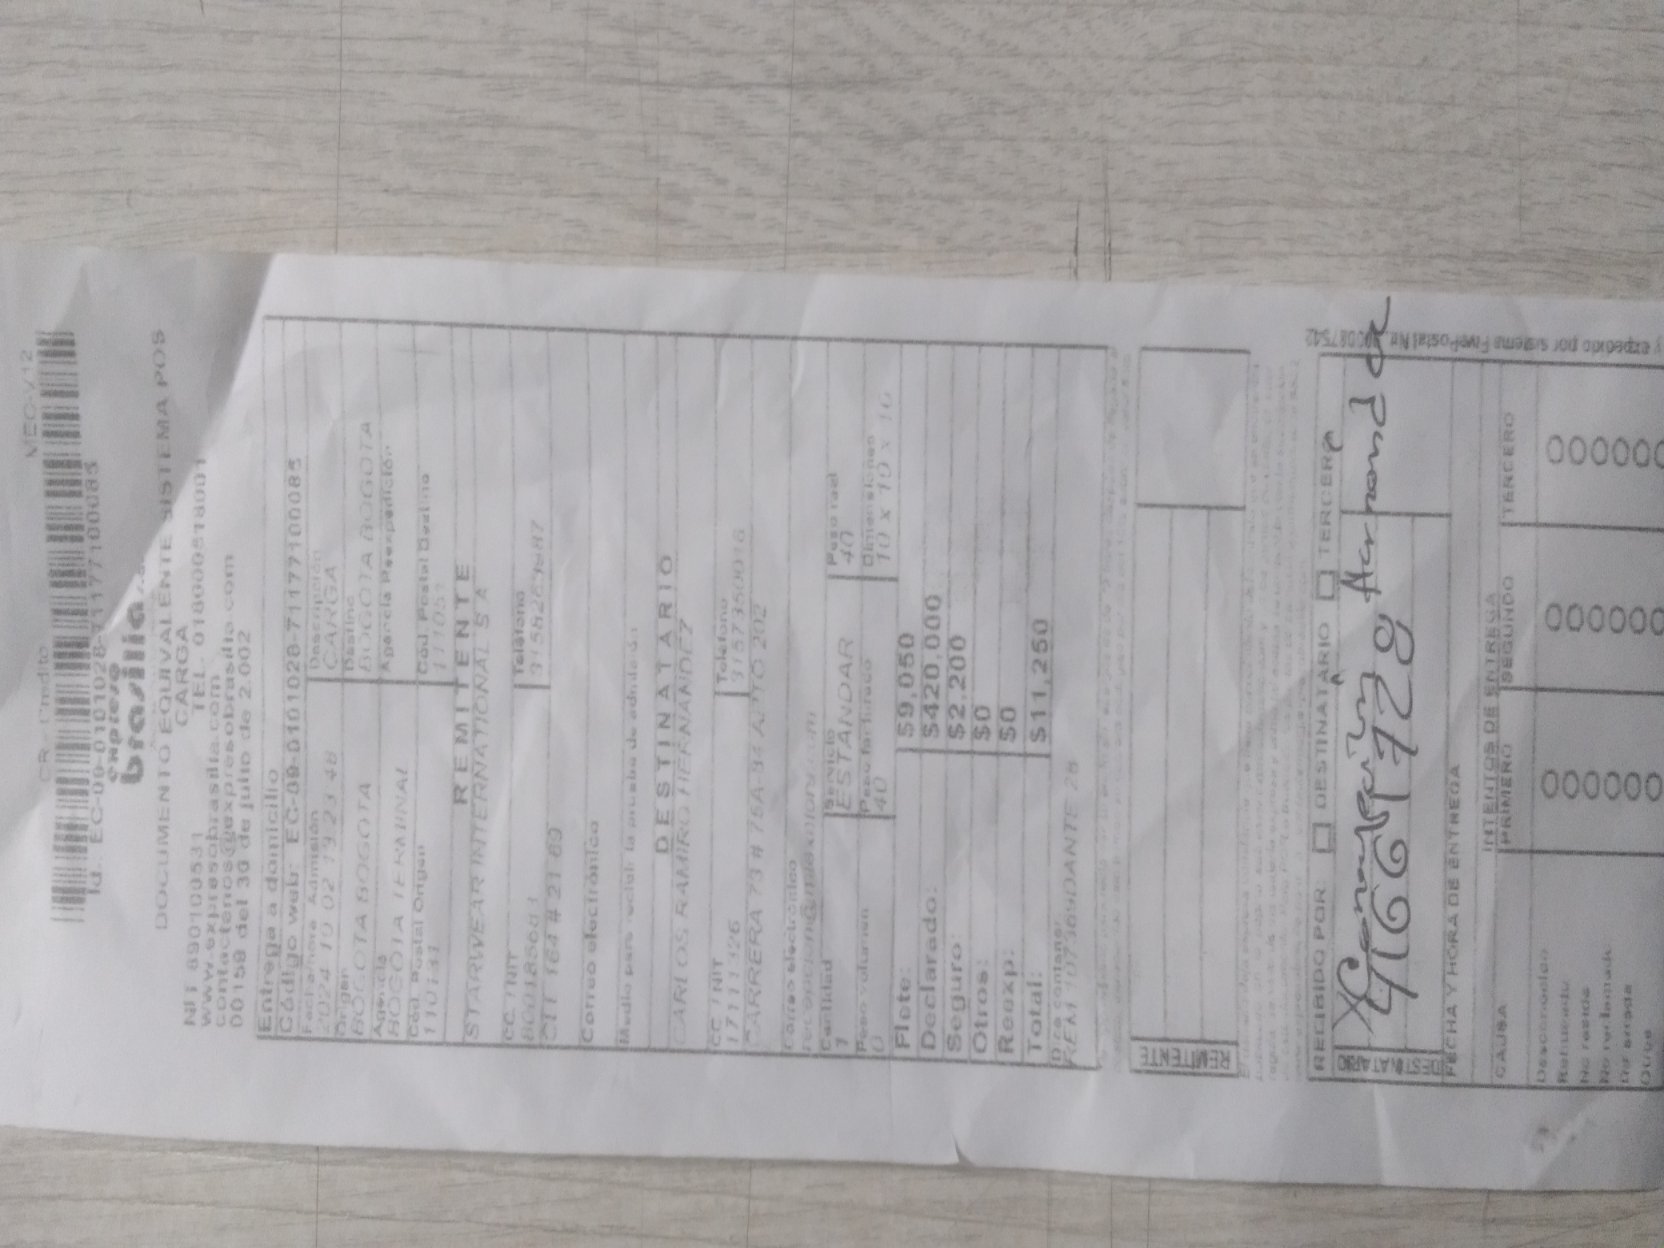 CR - Crédito
Id.: EC-09-0101028-71177100085
expreso
brasilia
DOCUMENTO EQUIVALENTE SISTEMA POS
CARGA
NIT 8901005311 TEL. 018000518001
www.expresobrasilia.com
contactenos@expresobrasilia.com
00158 del 30 de julio de 2.002
Entrega a domicilio
Código web: EC-09-0101028-71177100085
Fecha/Hora Admisión Descripción
2024 10 02 19:23:48 CARGA
Origen Destino
BOGOTA BOGOTA BOGOTA BOGOTA
Agencia Agencia Reexpedición:
BOGOTA TERMINAL
Cód. Postal Origen Cód Postal Destino
REMITENTE
STARWEAR INTERNATIONAL S A
CC / NIT Teléfono
CLL 164 # 21 69
Correo electrónico
Medio para recibir la prueba de admisión
DESTINATARIO
CARLOS RAMIRO HERNANDEZ
CC / NIT Telefono
17111326 3157350016
CARRERA 73 # 75A-84 APTO 202
Correo electrónico
Cantidad Servicio Peso real
1 ESTANDAR 40
Peso volumen Peso facturado Dimensiones
0 40 10 x 10 x 10
Flete: $9,050
Declarado: $420,000
Seguro: $2,200
Otros: $0
Reexp: $0
Total: $11,250
Dice contener
REMITENTE
RECIBIDO POR: DESTINATARIO TERCERO
Hernandez
41661928
DESTINATARIO
FECHA Y HORA DE ENTREGA
INTENTOS DE ENTREGA
CAUSA PRIMERO SEGUNDO TERCERO
Desconocido
Rehusado
No reside
No reclamado
Dir errada
Otros